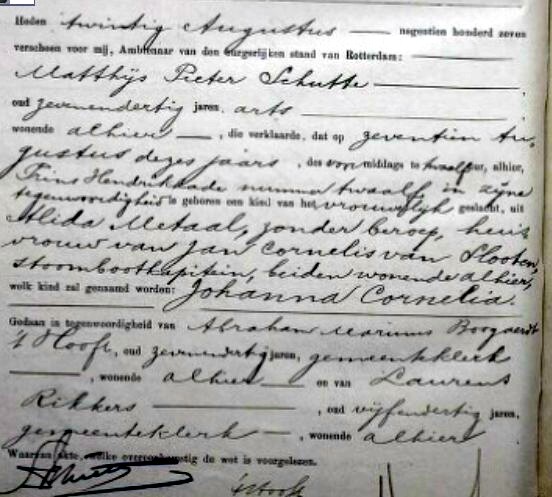 Heden twintig Augustus negentien honderd zeven
verscheen voor mij, Ambtenaar van den burgerlijken stand van Rotterdam:
Matthijs Pieter Schutte
oud zevenendertig jaren, arts
wonende alhier, die verklaarde, dat op zeventien Au-
gustus dezes jaars, des voormiddags te twaalf ure, alhier,
Prins Hendrikkade nummer twaalf, in zijne
tegenwoordigheid is geboren een kind van het vrouwelijk geslacht, uit
Alida Metaal, zonder beroep, huis-
vrouw van Jan Cornelis van Slooten,
stoombootkapitein, beiden wonende alhier,
welk kind zal genaamd worden: Johanna Cornelia.
Gedaan in tegenwoordigheid van Abraham Marinus Boogaerdt
't Hooft, oud zevenendertig jaren, gemeenteklerk
, wonende alhier en van Laurens
Rikkers, oud vijfendertig jaren,
gemeenteklerk, wonende alhier
Waarvan akte, welke overeenkomstig de wet is voorgelezen.
't Hooft